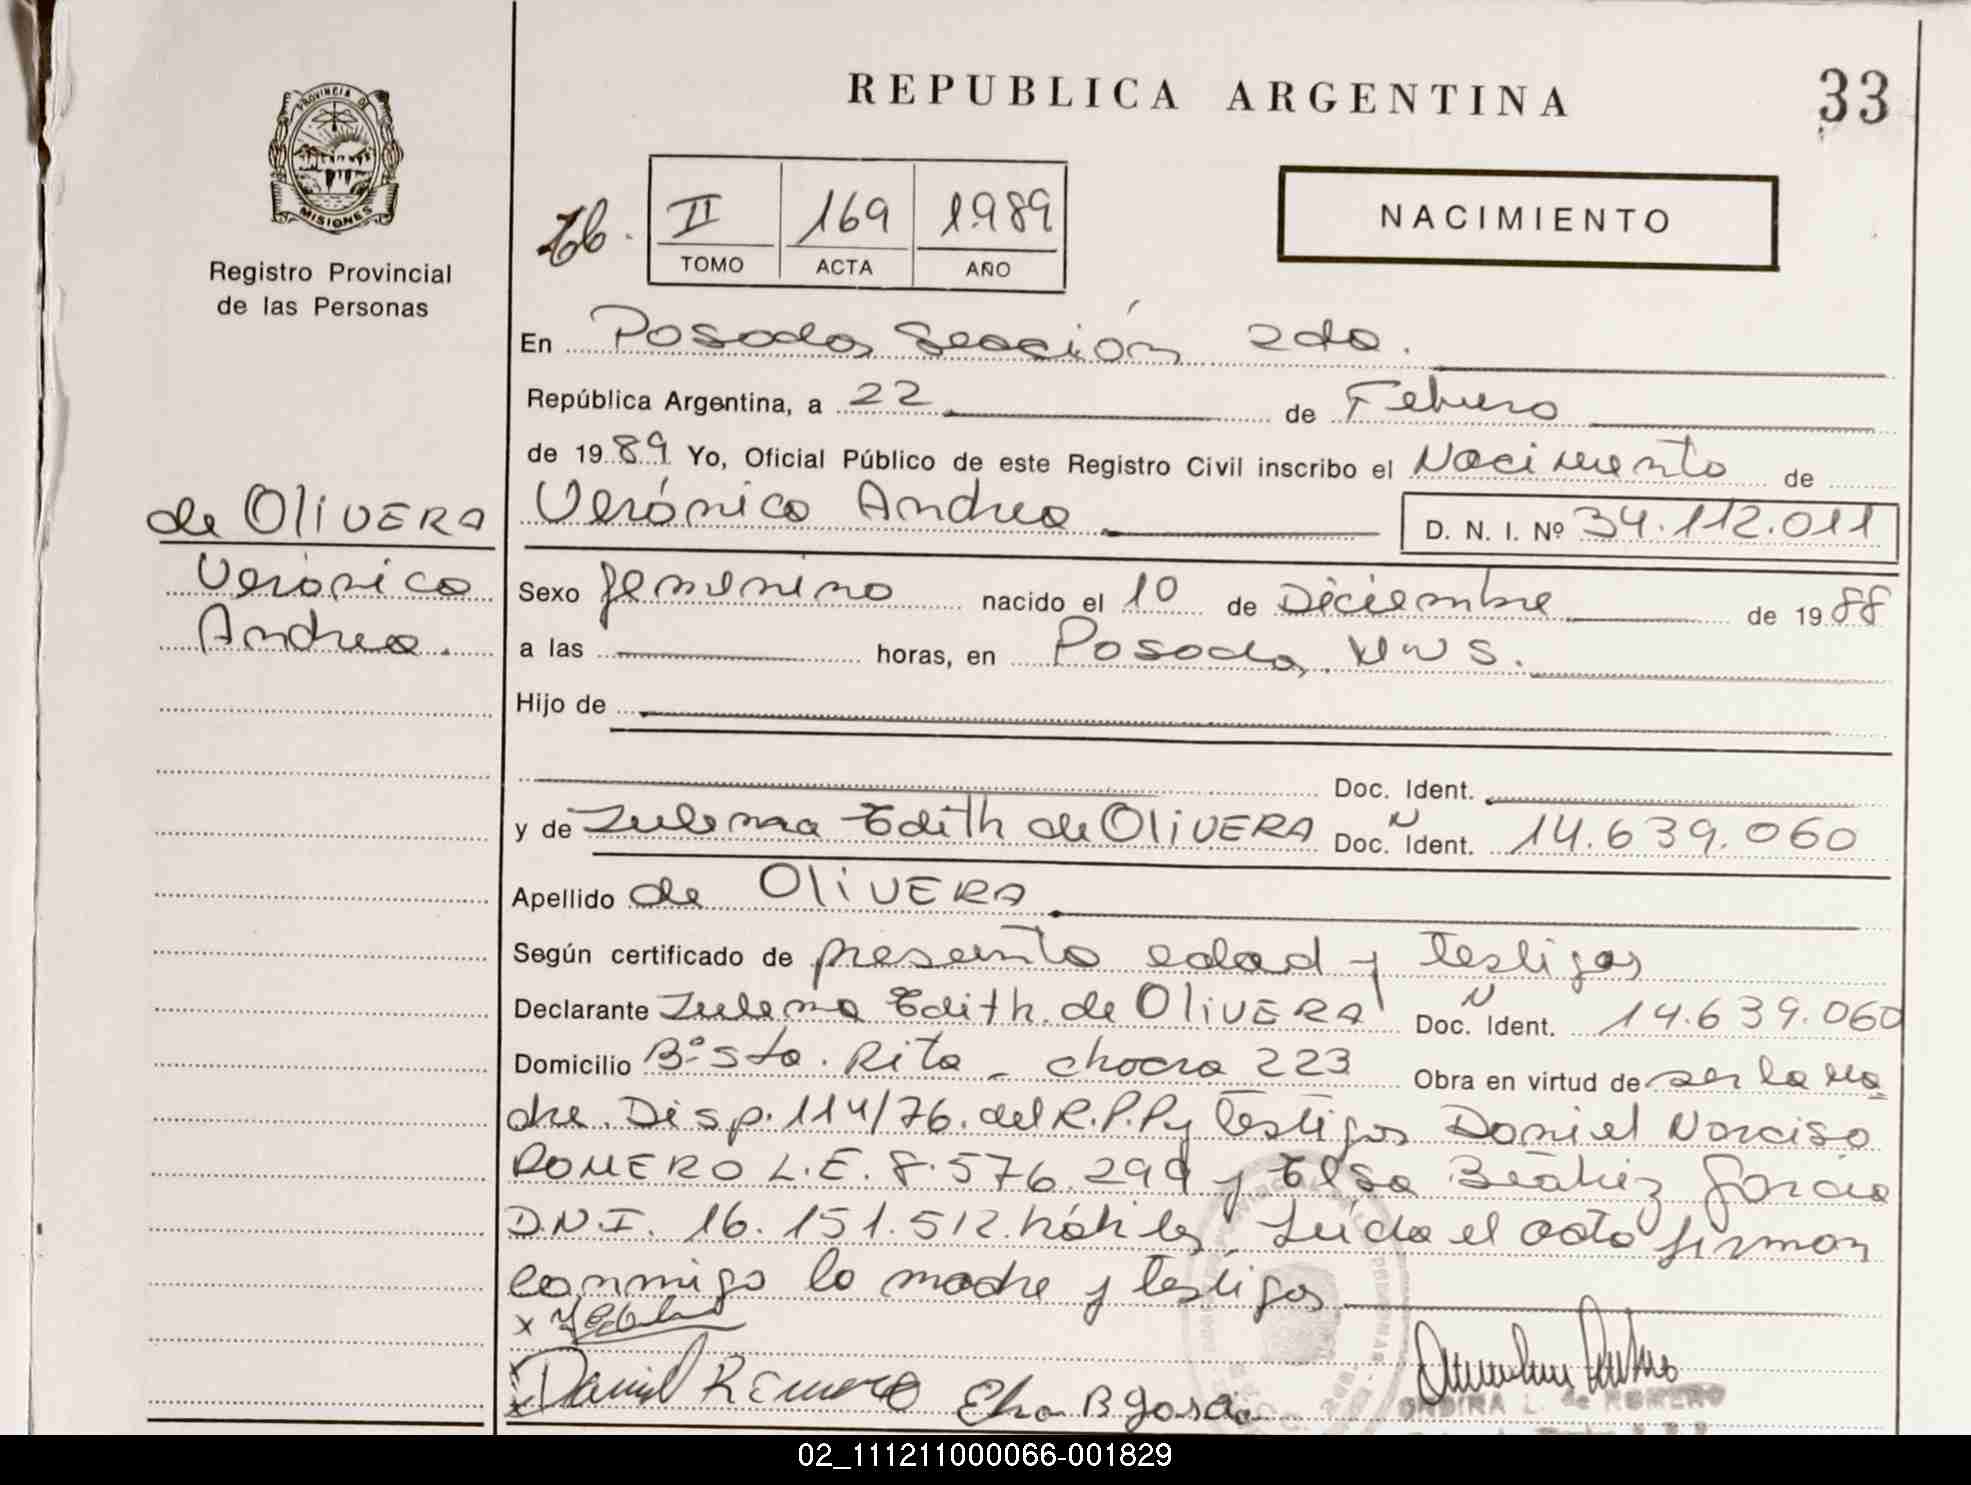 REPUBLICA ARGENTINA
33
PROVINCIA DE
MISIONES
Registro Provincial
de las Personas
II 169 1989
TOMO ACTA AÑO
NACIMIENTO
En Posadas Sección 2da.
República Argentina, a 22 de Febrero
de 1989 Yo, Oficial Público de este Registro Civil inscribo el Nacimiento de
Verónica Andrea
D. N. I. Nº 34.112.011
de OliVERA
Verónica
Andrea.
Sexo femenino nacido el 10 de Diciembre de 1988
a las horas, en Posadas, Mns.
Hijo de
Doc. Ident.
y de Zulema Edith de OliVERA Doc. N Ident. 14.639.060
Apellido de OliVERA
Según certificado de presento edad y testigos
Declarante Zulema Edith de OliVERA Doc. N Ident. 14.639.060
Domicilio Bº Sta. Rita - chacra 223 Obra en virtud de ser la ma
dre. Disp. 114/76. del R.P.P y testigos Daniel Narciso
ROMERO L.E. 8.576.299 y Elsa Beatriz Garcia
D.N.I. 16.151.512. hábiles. Leida el acta firman
conmigo la madre y testigos
x
Daniel Romero Elsa B Garcia
ONDINA L. de ROMERO
02_111211000066-001829